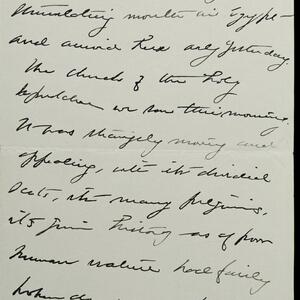 month in Egypt –
and arrived here only yesterday.
The Church of the Holy
Sepulchre we saw this morning.
It was strangely moving and
appealing, with its divided
sects, its many pilgrims,
its grim history – as if poor
human nature had fairly